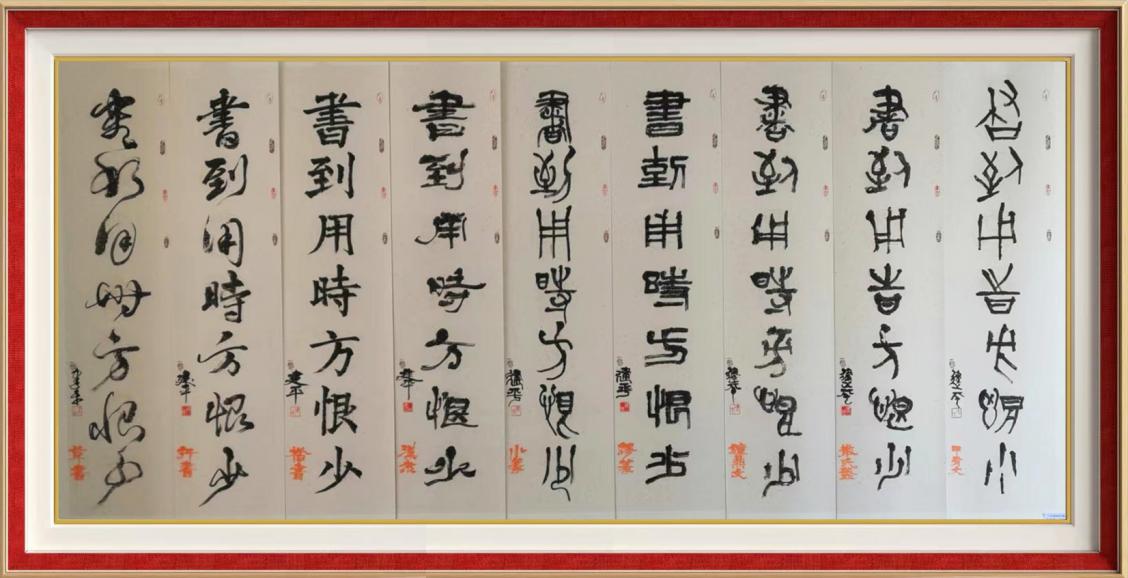 書到用時方恨少
建平
甲骨文
書到用時方恨少
建平
散氏盤
書到用時方恨少
建平
鐘鼎文
書到用時方恨少
建平
繆篆
書到用時方恨少
建平
小篆
書到用時方恨少
建平
漢隸
書到用時方恨少
建平
楷書
書到用時方恨少
建平
行書
書到用時方恨少
建平
草書